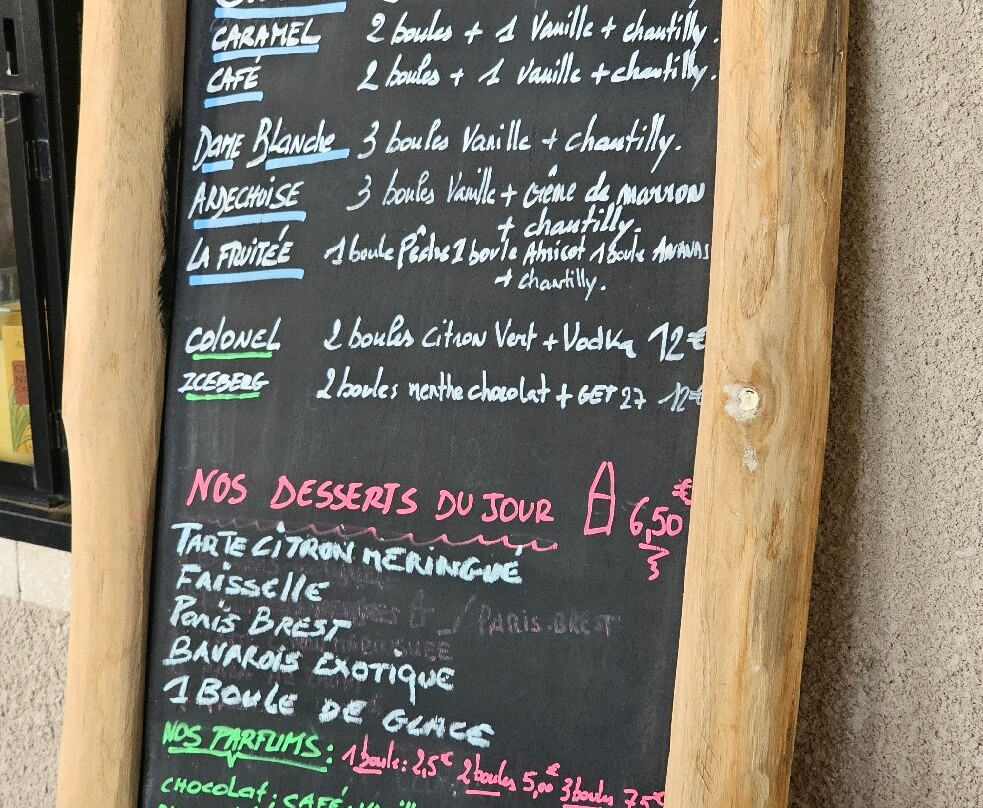 CARAMEL 2 boules + 1 Vanille + chantilly.
CAFÉ 2 boules + 1 Vanille + chantilly.
DAME BLANCHE 3 boules Vanille + chantilly.
ARDECHOISE 3 boules Vanille + crême de marron
+ chantilly.
LA FRUITÉE 1 boule Pêche 1 boule Abricot 1 boule ANANAS
+ chantilly.
COLONEL 2 boules citron Vert + Vodka 12€
ICEBERG 2 boules menthe chocolat + GET 27 12€
NOS DESSERTS DU JOUR À 6,50€
TARTE CITRON MERINGUÉ
FAISSELLE
PARIS BREST
PARIS-BREST
BAVAROIS EXOTIQUE
1 BOULE DE GLACE
NOS PARFUMS: 1 boule: 2,5€ 2 boules 5,00€ 3 boules 7,5€
CHOCOLAT; CAFÉ;